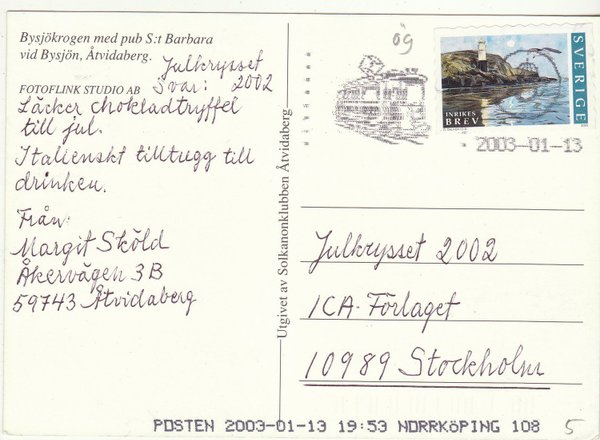 Bysjökrogen med pub S:t Barbara
vid Bysjön, Åtvidaberg.
FOTOFLINK STUDIO AB
Julkrysset
Svar: 2002
Läcker chokladtryffel
till jul.
Italienskt tilltugg till
drinken.
Från:
Margit Sköld
Åkervägen 3B
59743 Åtvidaberg
Utgivet av Solkanonklubben Åtvidaberg
ög
INRIKES
BREV
SVERIGE
2003-01-13
Julkrysset 2002
ICA-Förlaget
10989 Stockholm
POSTEN 2003-01-13 19:53 NORRKÖPING 108
5